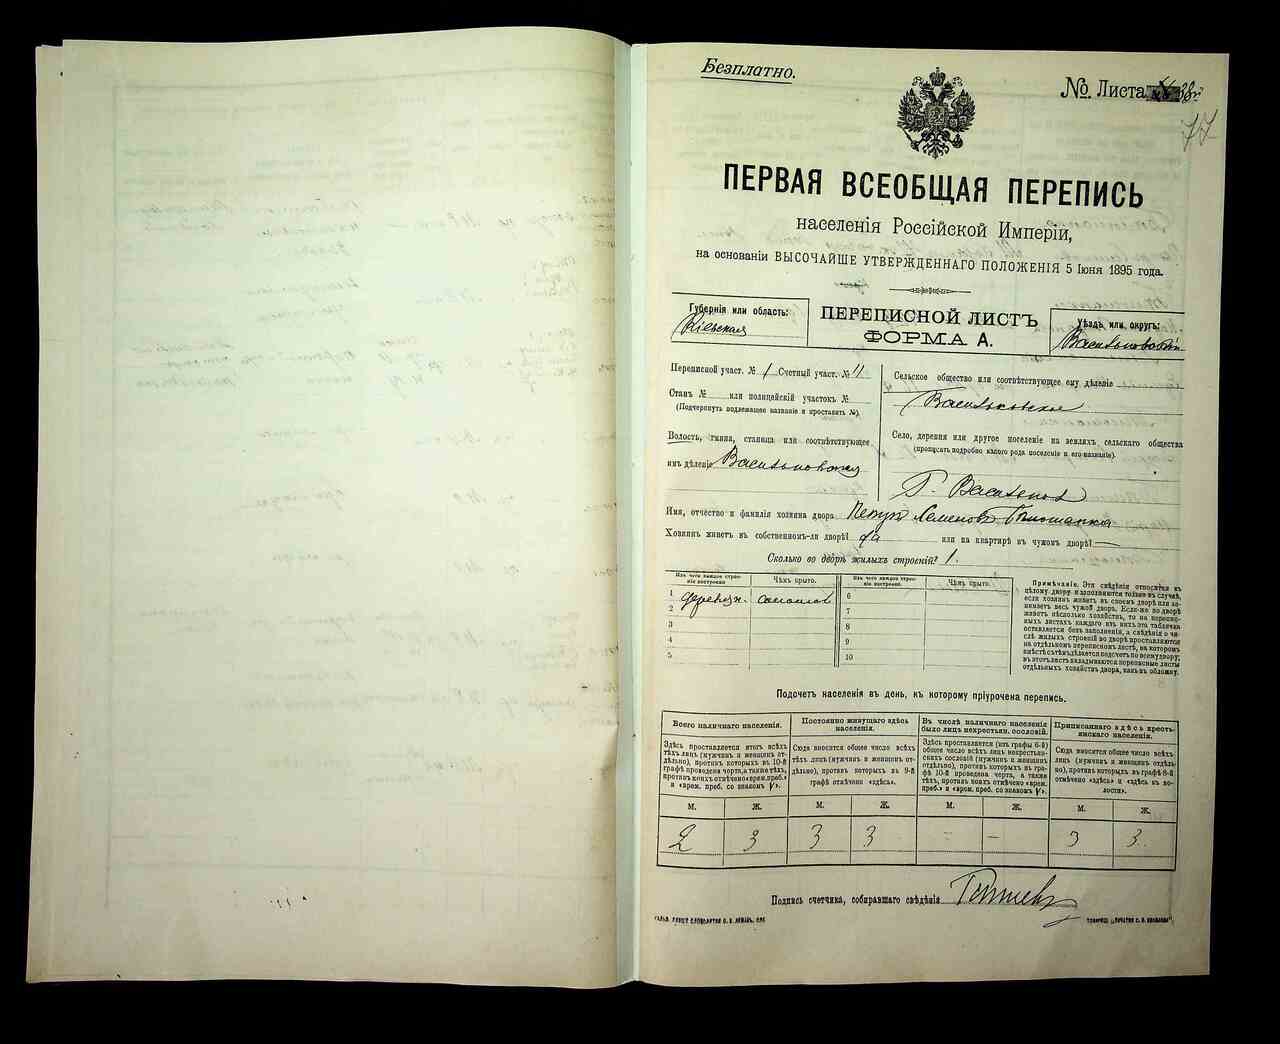 Безплатно.
№ Листа 38
77
ПЕРВАЯ ВСЕОБЩАЯ ПЕРЕПИСЬ
населенія Россійской Имперіи,
на основаніи ВЫСОЧАЙШЕ УТВЕРЖДЕННАГО ПОЛОЖЕНІЯ 5 Іюня 1895 года.
Губернія или область:
Кіевская
ПЕРЕПИСНОЙ ЛИСТЪ
ФОРМА А.
Уѣздъ или округъ:
Васильковскій
Переписной участ. № 1 Счетный участ. № 11
Станъ № или полицейскій участокъ №
(Подчеркнуть подлежащее названіе и проставить №).
Волость, гмина, станица или соотвѣтствующее
имъ дѣленіе Васильковская
Сельское общество или соотвѣтствующее ему дѣленіе
Васильковское
Село, деревня или другое поселеніе на земляхъ сельскаго общества
(прописать подробно какого рода поселеніе и его названіе).
Г. Васильков
Имя, отчество и фамилія хозяина двора Семенов
Хозяинъ живетъ въ собственномъ-ли дворѣ? да или на квартирѣ въ чужомъ дворѣ? —
Сколько во дворѣ жилыхъ строеній? 1.
Изъ чего каждое строеніе построено.
Чѣмъ крыто.
Изъ чего каждое строеніе построено.
Чѣмъ крыто.
1 деревян. соломою
2
3
4
5
6
7
8
9
10
Примѣчаніе. Эти свѣдѣнія относятся къ
цѣлому двору и заполняются только въ случаѣ,
если хозяинъ живетъ въ своемъ дворѣ или занимаетъ
весь чужой дворъ. Если-же во дворѣ
живетъ нѣсколько хозяйствъ, то на переписныхъ
листахъ каждаго изъ нихъ эта табличка
оставляется безъ заполненія, а свѣдѣнія о числѣ
жилыхъ строеній во дворѣ проставляются
на отдѣльномъ переписномъ листѣ, на которомъ
вмѣстѣ съ тѣмъ дѣлается подсчетъ по всему двору;
въ этотъ листъ вкладываются переписные листы
отдѣльныхъ хозяйствъ двора, какъ въ обложку.
Подсчетъ населенія въ день, къ которому пріурочена перепись.
Всего наличнаго населенія.
Здѣсь проставляется итогъ всѣхъ
тѣхъ лицъ (мужчинъ и женщинъ отдѣльно),
противъ которыхъ въ 10-й
графѣ проведена черта, а также тѣхъ,
противъ коихъ отмѣчено «врем. преб.»
и «врем. преб. со знакомъ V».
Постоянно живущаго здѣсь
населенія.
Сюда вносится общее число всѣхъ
тѣхъ лицъ (мужчинъ и женщинъ отдѣльно),
противъ которыхъ въ 9-й
графѣ отмѣчено «здѣсь».
Въ числѣ наличнаго населенія
было лицъ некрестьян. сословій.
Здѣсь проставляется (изъ графы 6-й)
общее число всѣхъ лицъ некрестьянскихъ
сословій (мужчинъ и женщинъ
отдѣльно), противъ которыхъ въ графѣ
10-й проведена черта, а также
тѣхъ, противъ коихъ отмѣчено «врем.
преб.» и «врем. преб. со знакомъ V».
Приписаннаго здѣсь крестьянскаго
населенія.
Сюда вносится общее число всѣхъ
лицъ (мужчинъ и женщинъ отдѣльно),
противъ которыхъ въ графѣ 8-й
отмѣчено «здѣсь» и «здѣсь въ волости».
М. Ж. М. Ж. М. Ж. М. Ж.
2 3 3 3 – – 3 3
Подпись счетчика, собиравшаго свѣдѣнія